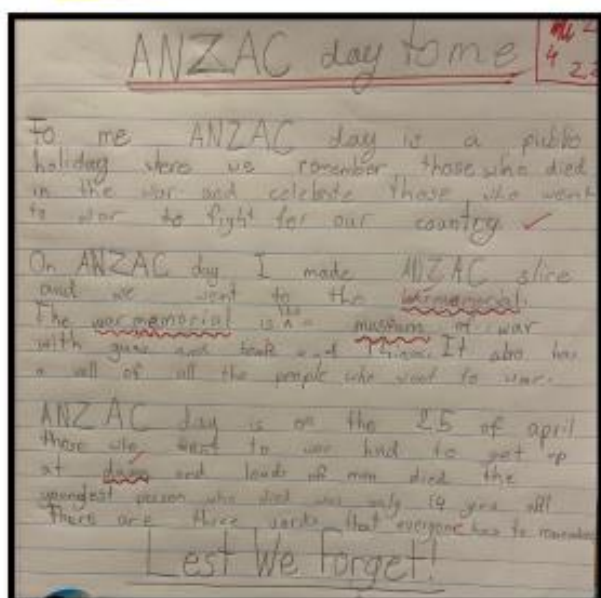 ANZAC day to me
To me ANZAC day is a public
holiday were we remember those who died
in the war and celebrate those who went
to war to fight for our country
On ANZAC day I made ANZAC slice
and we went to the warmemorial.
The war memorial is a museum of war
with guns and tank and It also has
a wall of all the people who went to war.
ANZAC day is on the 25 of april
those who went to war had to get up
at and loads of men died the
youngest person who died was only 14 years old!
There are three words that everyone has to remember
Lest We Forget!